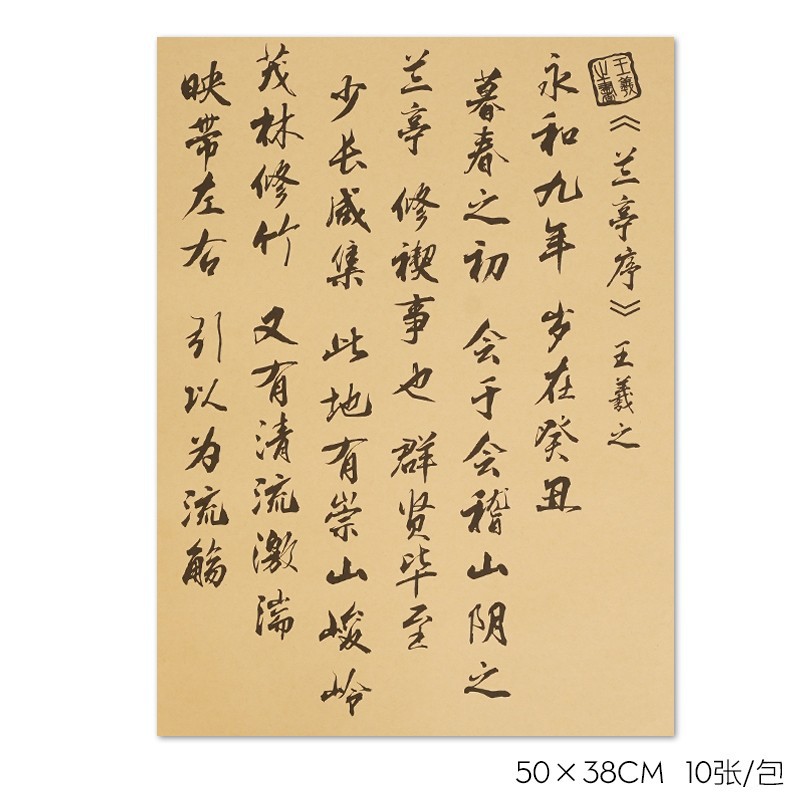 王羲之书
《兰亭序》 王羲之
永和九年 岁在癸丑
暮春之初 会于会稽山阴之
兰亭 修禊事也 群贤毕至
少长咸集 此地有崇山峻岭
茂林修竹 又有清流激湍
映带左右 引以为流觞
50×38CM 10张/包